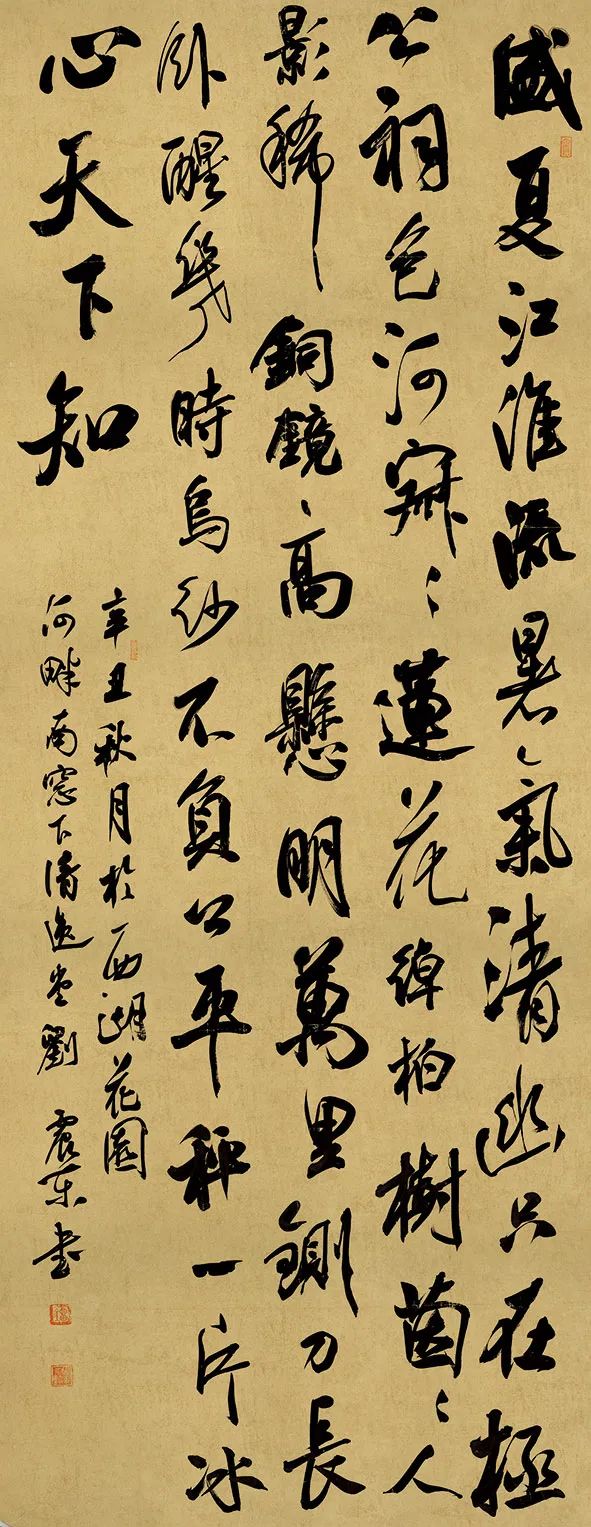 盛夏江淮流暑氣清幽只在拯
公祠包河寂々蓮花綽柏樹茵々人
影稀銅鏡高懸明萬里鍘刀長
卧醒幾時烏紗不負公平秤一片冰
心天下知
辛丑秋月於西湖花園
河畔南窗下清逸堂劉震東書